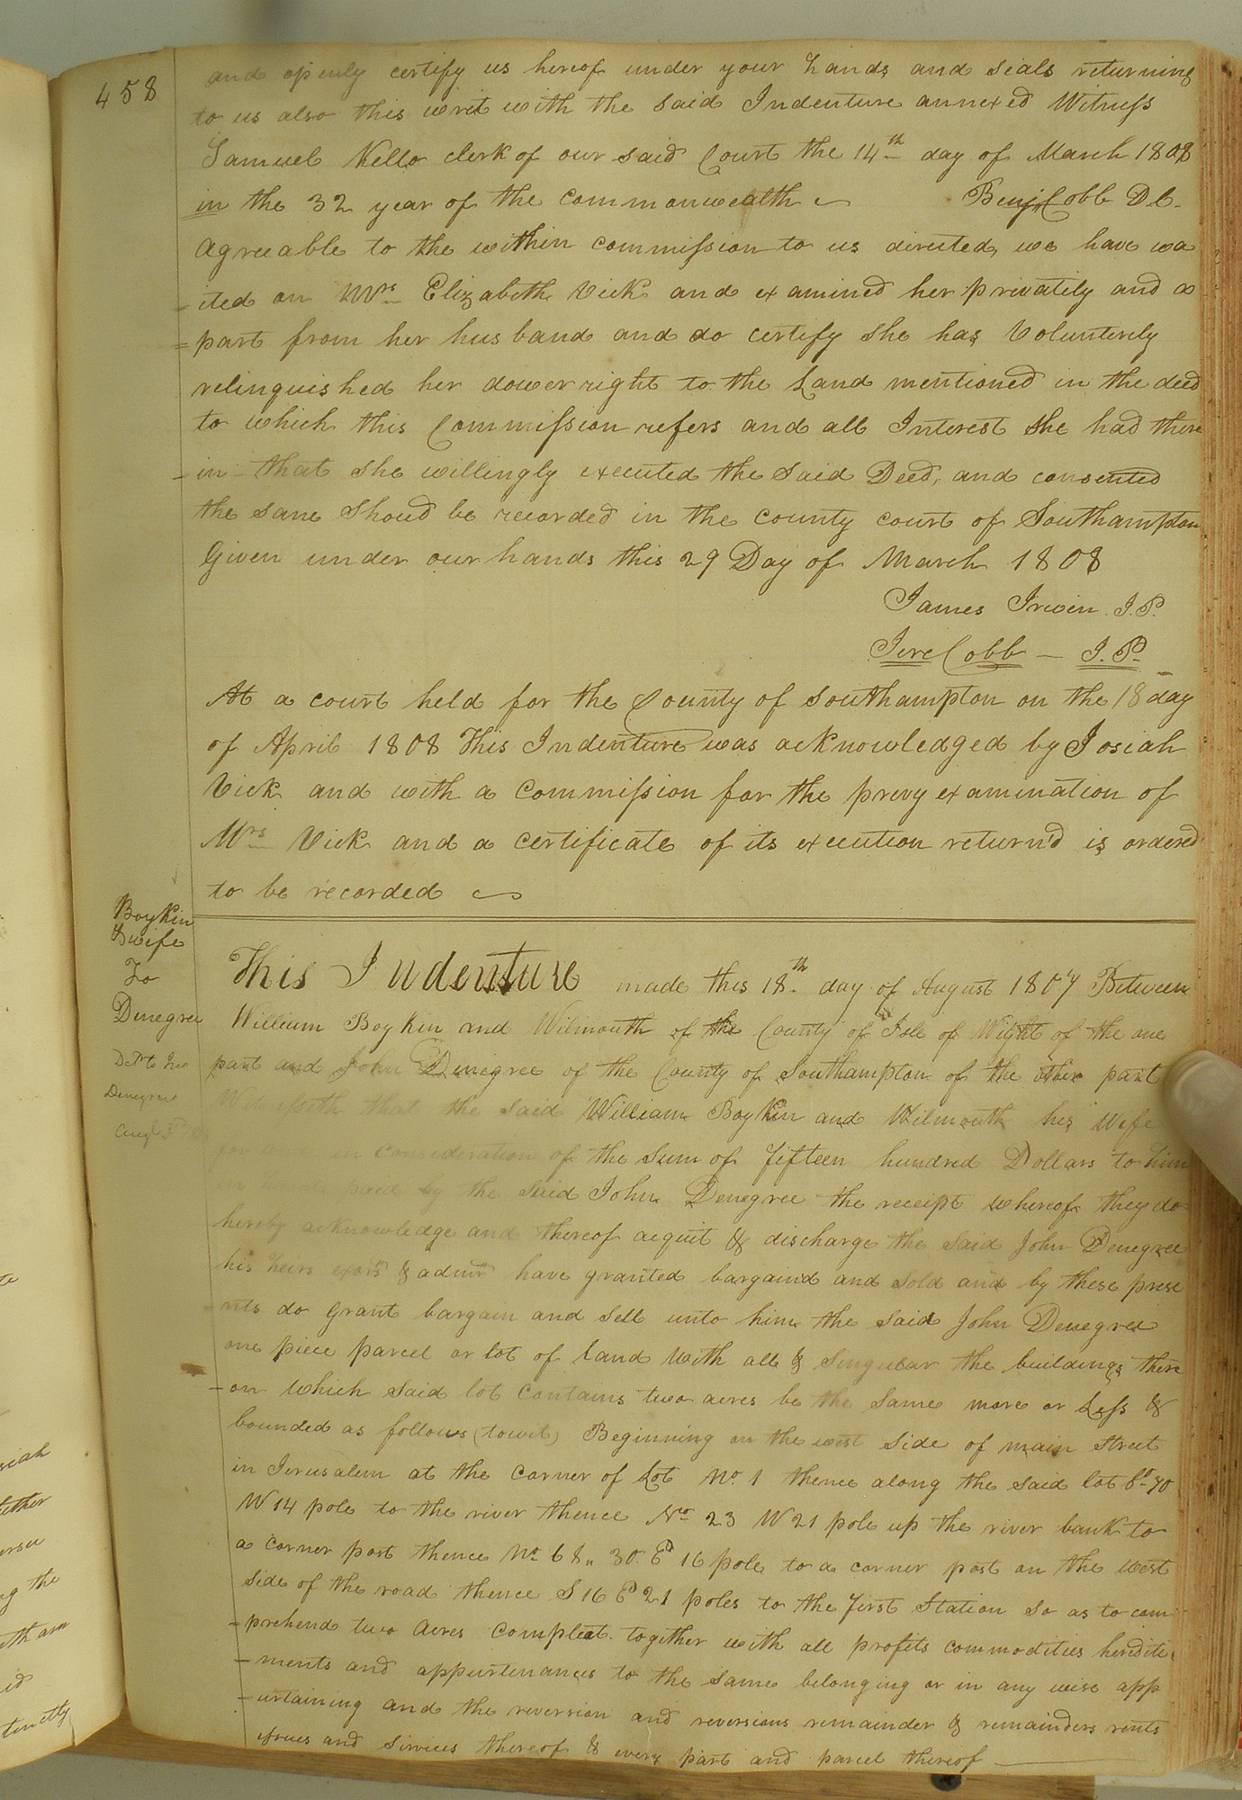 458
and openly certify us hereof under your hands and seals returning
to us also this writ with the said Indenture annexed Witness
Samuel Kello clerk of our said Court the 14th day of March 1808
in the 32 year of the commonwealth Benj Cobb D C.
agreeable to the within commission to us directed, we have wa
-ited on Mrs Elizabeth Vick and examined her privately and a
=part from her husband and do certify she has Volunterily
relinquished her dower right to the Land mentioned in the deed
to which this Commission refers and all Interest she had there
-in that she willingly executed the said Deed, and consented
the same Shoud be recorded in the county court of Southampton
Given under our hands this 29 Day of March 1808
James Irwin J.P.
Jere Cobb - J.P.
At a court held for the County of Southampton on the 18 day
of April 1808 This Indenture was acknowledged by Josiah
Vick and with a commission for the privy examination of
Mrs Vick and a certificate of its execution return'd is ordered
to be recorded
Boykin
& wife
To
Denegree
Denegree
This Indenture made this 18th day of August 1807 Between
William Boykin and Wilmouth of the County of Isle of Wight of the one
part and John Denegree of the County of Southampton of the other part
Witnesseth that the said William Boykin and Wilmouth his Wife
for and in consideration of the Sum of fifteen hundred Dollars to him
paid by the said John Denegree the receipt whereof they do
hereby acknowledge and thereof acquit & discharge the said John Denegree
his heirs exors & admrs have granted bargaind and sold and by these prese
nts do grant bargain and Sell unto him the said John Denegree
one piece parcel or lot of land With all & Singular the buildings there
-on Which said lot contains two acres be the Same more or Less &
bounded as follows (towit) Beginning on the west Side of main Street
in Jerusalem at the corner of Lot No 1 thence along the said lot So 70
W 14 pole to the river thence No 23 W 21 pole up the river bank to
a corner post thence No 68,, 30 Ed 16 pole to a corner post on the west
side of the road thence S 16 Ed 21 poles to the first Station So as to com
-prehend two Acres Compleat together with all profits commodities heredite
-ments and appurtenances to the same belonging or in any wise app
-urtaining and the reversion and reversions remainder & remainders rents
issues and Services thereof & every part and parcel thereof